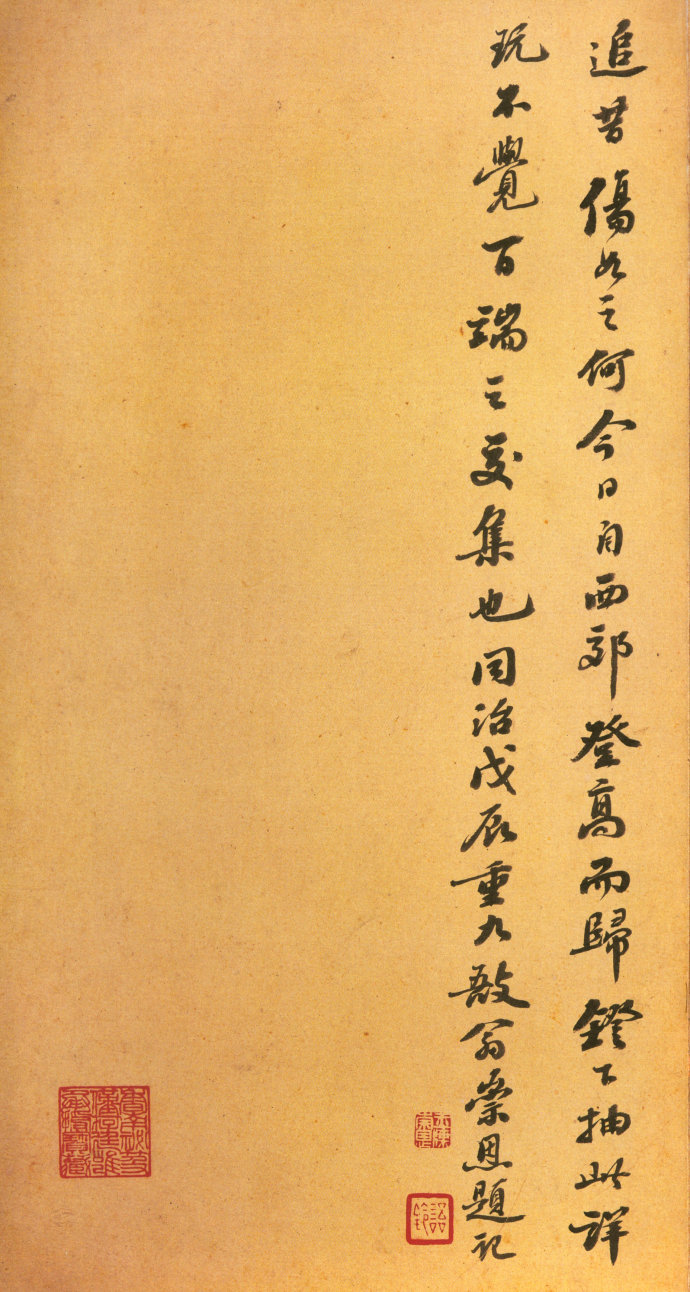 追昔傷如之何今日自西郊登高而歸鐙下抽此詳
玩不覺百端之交集也同治戊辰重九敔翁崇恩題記